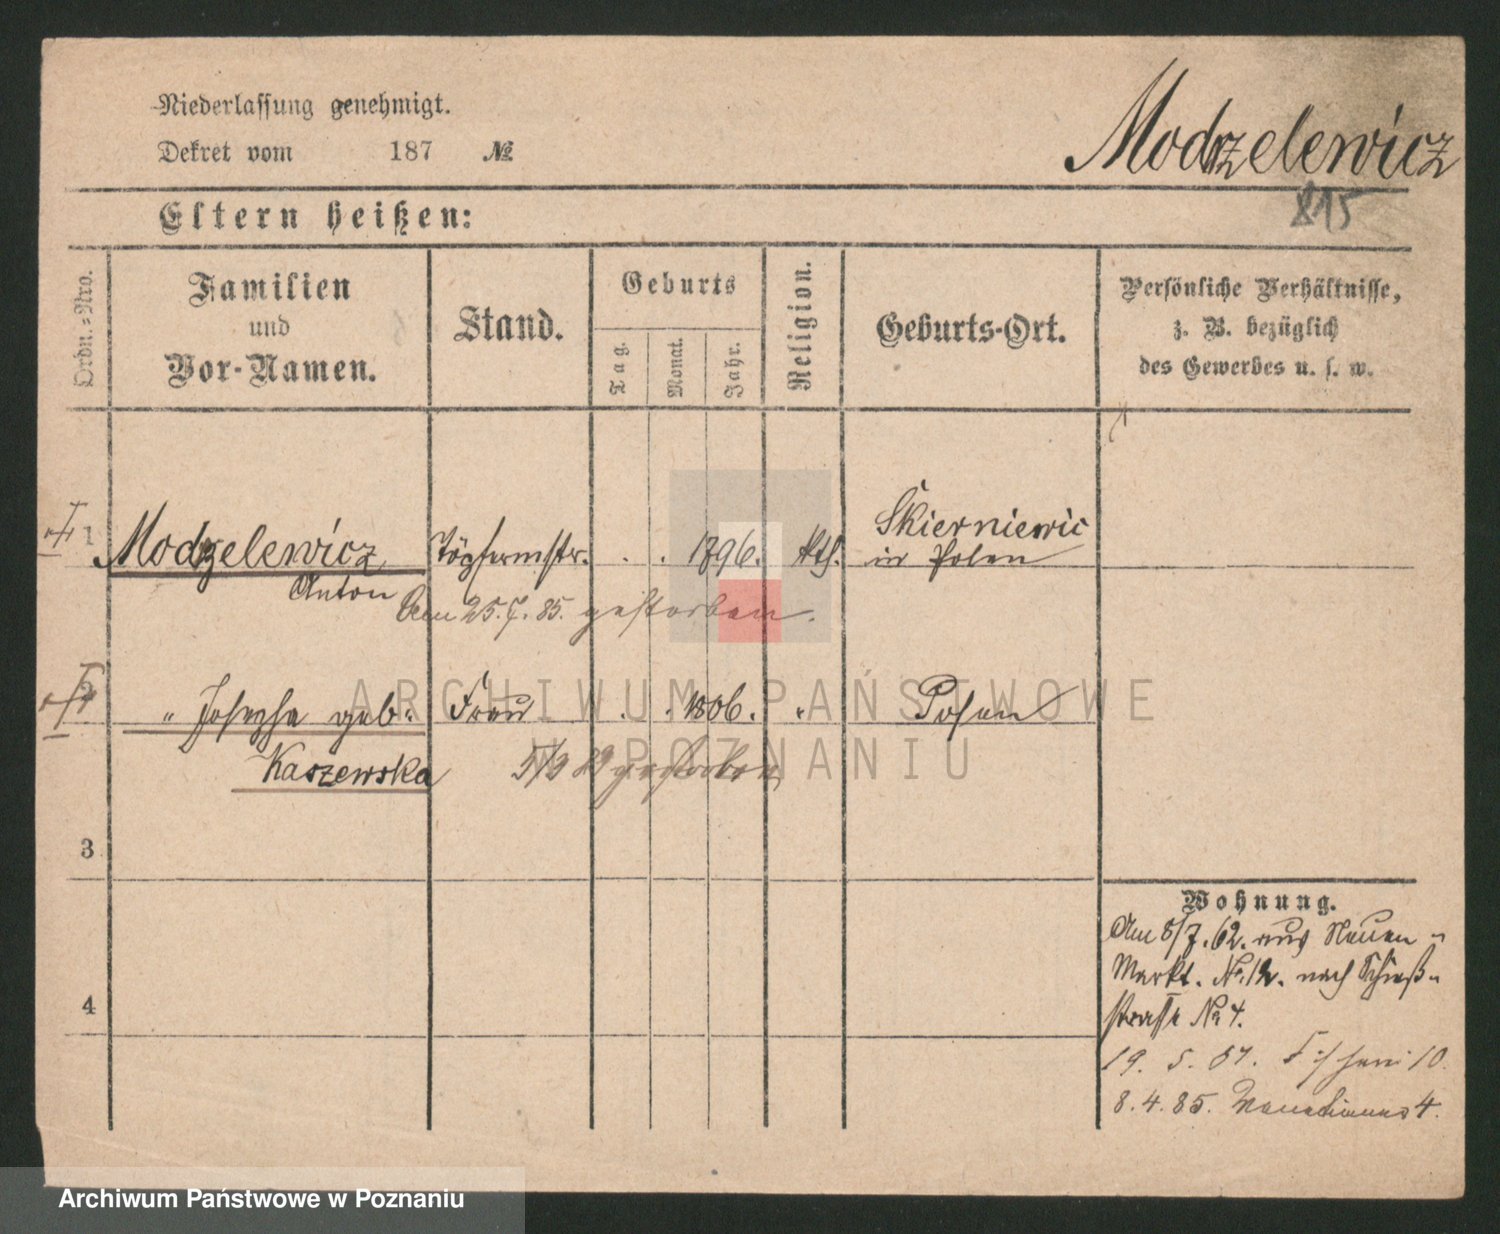 Niederlassung genehmigt.
Dekret vom 187 №
Modrzelewicz
815
Eltern heißen:
Ordn.=Nro.
Familien
und
Vor-Namen.
Stand.
Geburts
Tag.
Monat.
Jahr.
Religion.
Geburts-Ort.
Persönliche Verhältnisse,
z. B. bezüglich
des Gewerbes u. s. w.
1 Modrzelewicz Töpfermstr. . . 1796. kth. Skierniewic
in Polen
Anton
Am 25.7.85. gestorben.
2 " Josepha geb. Frau . . 1806. " Posen
Kaszewska
5/9 89 gestorben
3
4
Wohnung.
Am 8/7.62. aus Neuen-
Markt. No.12. nach Schieß-
strasse No 4.
19. 5. 10.
8.4.85. 4.
ARCHIWUM PAŃSTWOWE
W POZNANIU
Archiwum Państwowe w Poznaniu